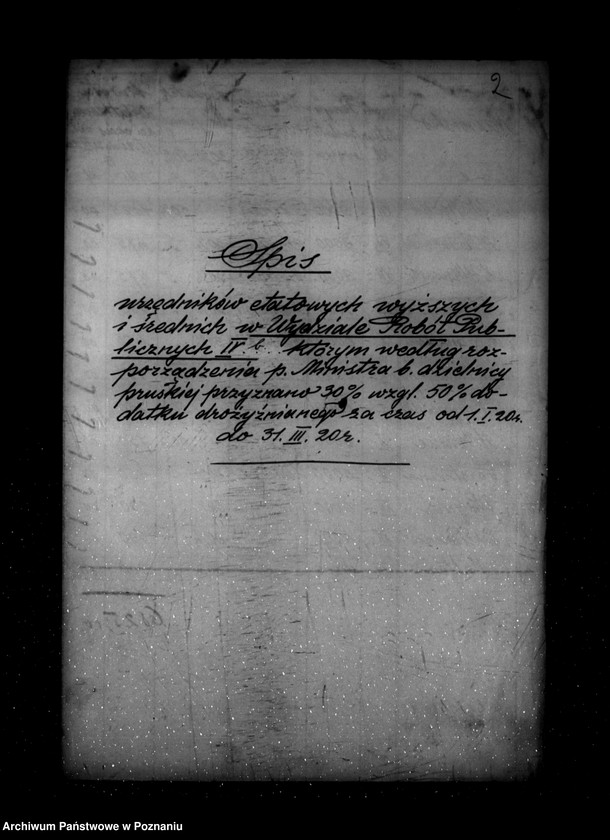 2
Spis
urzędników etatowych wyższych
i średnich w Wydziale Robót Pub-
licznych IV b. którym według roz-
porządzenia p. Ministra b. dzielnicy
pruskiej przyznano 30% wzgl. 50% do-
datku drożyźnianego za czas od 1. I. 20r.
do 31. III. 20r.
Archiwum Państwowe w Poznaniu